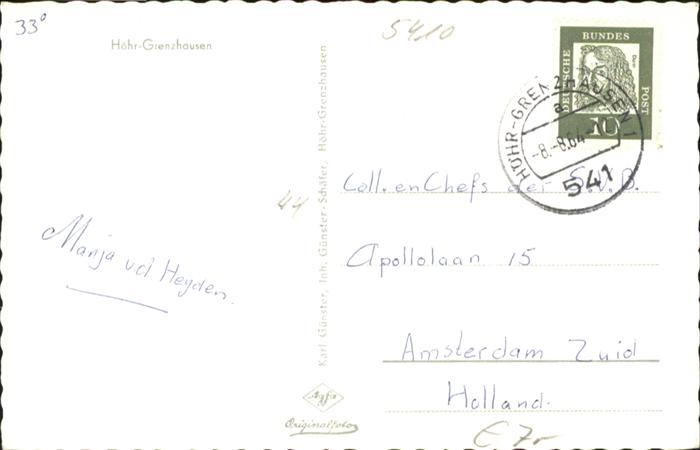 33°
Höhr-Grenzhausen
5410
DEUTSCHE BUNDES POST
Dürer
10
HÖHR-GRENZHAUSEN 1
a
-8.-8.64-
541
Coll. en Chefs der S.V.B.
44
Apollolaan 15
Manja vd Heyden.
Amsterdam Zuid
Holland.
Karl Günster, Inh. Günster-Schäfer, Höhr-Grenzhausen
Agfa
Originalfoto
€ 7,-